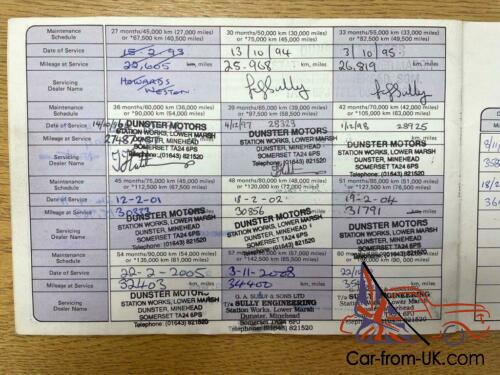 Maintenance Schedule
27 months/45,000 km (27,000 miles) or *67,500 km (40,500 miles)
30 months/50,000 km (30,000 miles) or *75,000 km (45,000 miles)
33 months/55,000 km (33,000 miles)
Date of Service
15-2-93
13/10/94
3/10/95
Mileage at Service
22,605 km, miles
25-968 km, miles
26,819 km, miles
Servicing Dealer Name
HOWARDS WESTON
Maintenance Schedule
36 months/60,000 km (36,000 miles) or *90,000 km (54,000 miles)
39 months/65,000 km (39,000 miles) or *97,500 km
42 months/70,000 km (42,000 miles)
Date of Service
14/10/96
4/12/97
28323
1/12/98
28725
Mileage at Service
2748
Servicing Dealer Name
DUNSTER MOTORS
STATION WORKS, LOWER MARSH
DUNSTER, MINEHEAD
SOMERSET TA24 6PS
Telephone: (01643) 821520
DUNSTER MOTORS
STATION WORKS, LOWER MARSH
DUNSTER, MINEHEAD
SOMERSET TA24 6PS
Telephone: (01643) 821520
DUNSTER MOTORS
STATION WORKS, LOWER MARSH
DUNSTER, MINEHEAD
SOMERSET TA24 6PS
Telephone: (01643) 821520
Maintenance Schedule
45 months/75,000 km (45,000 miles) or *112,500 km (67,500 miles)
48 months/80,000 km (48,000 miles) or *120,000 km (72,000 miles)
51 months/85,000 km (51,000 miles) or *127,500 km (76,500 miles)
Date of Service
12-2-01
18-2-02
19-2-04
Mileage at Service
30856
31791
Servicing Dealer Name
DUNSTER MOTORS
STATION WORKS, LOWER MARSH
DUNSTER, MINEHEAD
SOMERSET TA24 6PS
Telephone: (01643) 821520
DUNSTER MOTORS
STATION WORKS, LOWER MARSH
DUNSTER, MINEHEAD
SOMERSET TA24 6PS
Telephone: (01643) 821520
DUNSTER MOTORS
STATION WORKS, LOWER MARSH
DUNSTER, MINEHEAD
SOMERSET TA24 6PS
Telephone: (01643) 821520
Maintenance Schedule
54 months/90,000 km (54,000 miles) or *135,000 km (81,000 miles)
or *142,500 km (85,500 miles)
(90,000 miles)
Date of Service
22-2-2005
3-11-2008
Mileage at Service
32403
34400
Servicing Dealer Name
DUNSTER MOTORS
STATION WORKS, LOWER MARSH
DUNSTER, MINEHEAD
SOMERSET TA24 6PS
Telephone: (01643) 821520
G. A. SULLY & SONS LTD
T/a SULLY ENGINEERING
Station Works, Lower Marsh
Dunster, Minehead
Somerset TA24 6PU
Telephone: (01643) 821520
T/a SULLY ENGINEERING
Car-from-UK.com